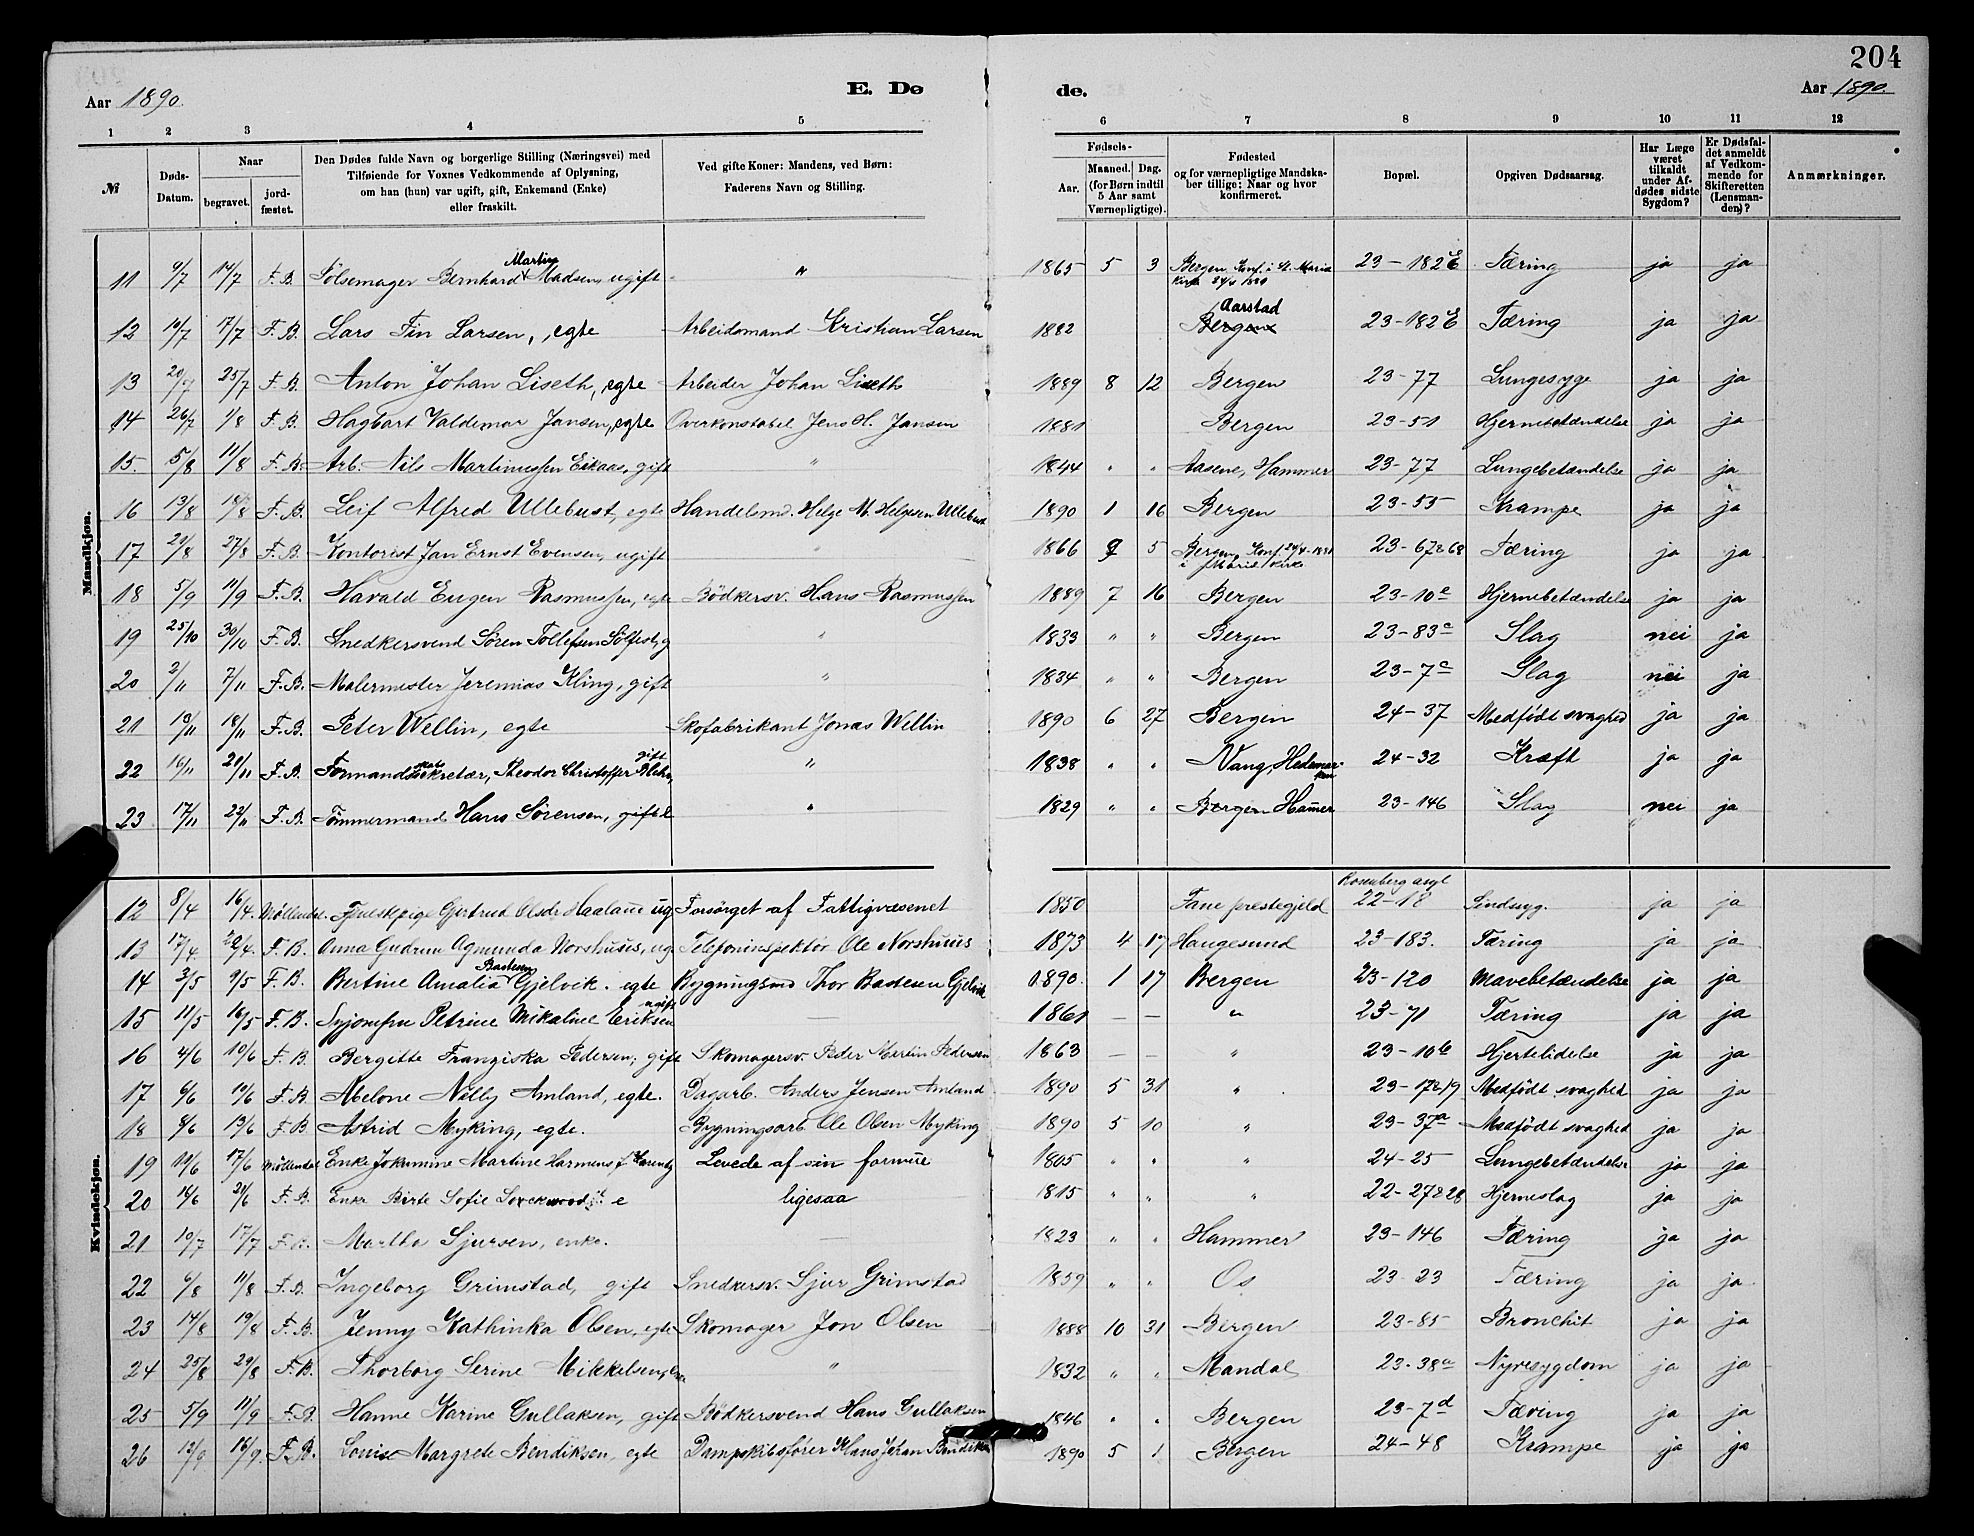 204
Aar 1890.
E. Dø
de.
Aar 1890.
1 2 3 4 5 6 7 8 9 10 11 12
№
Døds-Datum.
Naar
begravet.
jord-fæstet.
Den Dødes fulde Navn og borgerlige Stilling (Næringsvei) med
Tilføiende for Voxnes Vedkommende af Oplysning,
om han (hun) var ugift, gift, Enkemand (Enke)
eller fraskilt.
Ved gifte Koner: Mandens, ved Børn:
Faderens Navn og Stilling.
Fødsels-
Aar.
Maaned. Dag.
(for Børn indtil
5 Aar samt
Værnepligtige).
Fødested
og for værnepligtige Mandska-
ber tillige: Naar og hvor
konfirmeret.
Bopæl.
Opgiven Dødsaarsag.
Har Læge
været
tilkaldt
under Af-
dødes sidste
Sygdom?
Er Dødsfal-
det anmeldt
af Vedkom-
mende for
Skifteretten
(Lensman-
den)?
Anmærkninger.
Mandkjøn.
11 9/7 14/7 F.B. Pølsemager Bernhard Martin Madsen, ugift " 1865 5 3 Bergen Konf. i St. Maria Kirke 23-182E Tæring ja ja
12 10/7 17/7 F.B. Lars Fin Larsen, egte Arbeidsmand Kristian Larsen 1882 Bergen Aarstad 23-182E Tæring ja ja
13 20/7 25/7 F.B. Anton Johan Liseth, egte Arbeider Johan Liseth 1889 8 12 Bergen 23-77 Lungesyge ja ja
14 26/7 1/8 F.B. Hagbart Valdemar Jansen, egte Overkonstabel Jens H. Jansen 1881 Bergen 23-51 Hjernebetændelse ja ja
15. 5/8 11/8 F.B. Arb. Nils Martinussen Eikaas, gift " 1844 " " Aasene, Hammer 23-77 Lungebetændelse ja ja
16 13/8 18/8 F.B. Leif Alfred Ullebust, egte Handelsmd. Helge M. Helgesen Ullebust 1890 1 16 Bergen 23-55 Krampe ja ja
17 20/8 27/8 F.B. Kontorist Jan Ernst Evensen, ugift " 1866 9 5 Bergen, Konf. 24/4-1881 i Mariekirke 23-67&68 Tæring ja ja
18 5/9 11/9 F.B. Harald Eugen Rasmussen, egte Bödkersv. Hans Rasmussen 1889 7 16 Bergen 23-10e Hjernebetændelse ja ja
19 25/10 30/10 F.B. Snedkersvend Sören Tollefsen Sölfest, g " 1833 " " Bergen 23-83c Slag nei ja
20 2/11 7/11 F.B. Malermester Jeremias Kling, gift " 1834 " " Bergen 23-7c Slag nei ja
21 13/11 18/11 F.B. Peter Wellin, egte Skofabrikant Jonas Wellin 1890 6 27 Bergen 24-37 Medfödt svaghed ja ja
22 16/11 20/11 F.B. Formandskabssekretær, Theodor Christoffer gift " 1838 " " Vang, Hedemarken 24-32 Kræft ja ja
23 17/11 22/11 F.B. Tömmermand Hans Sörensen, gift " 1829 " " Bergen Hamer 23-146 Slag nei ja
Kvindekjøn.
12 8/4 16/4. Möllendal Gjertrud Olsdr Haaland ug Forsörget af Fattigvæsenet 1850 Fane præstegjeld Rosenberg asyl 22-18 Sindssyg. ja ja
13 17/4. 22/4. F.B. Anna Gudrun Agmunda Norshuus, ug Telefoninspektör Ole Norshuus 1873 4 17 Haugesund 23-183. Tæring ja ja
14 3/5 9/5 F.B. Bertine Amalia Bastesen Gjelvik. egte Bygningsmd Thor Bastesen Gjelvik 1890. 1 17 Bergen 23-120 Mavebetændelse ja ja
15 11/5 16/5 F.B. Syjomfru Petrine Mikaline Eriksen ugift — 1861 — — " 23-71 Tæring ja ja
16 4/6 10/6 F.B. Bergitte Franziska Pedersen, gift Skomagersv. Peder Martin Pedersen 1863 — — " 23-10b Hjertelidelse ja ja
17 6/6 10/6 F.B. Abelone Nilly Amland, egte. Dagarb. Anders Jensen Amland 1890 5 31 " 23-17&19 Medfödt svaghed ja ja
18 8/6 13/6 F.B. Astrid Myking, egte. Bygningsarb. Ole Olsen Myking 1890 5 10 " 23-37a Medfödt svaghed ja ja
19 11/6 17/6 Möllendal Enke Jokumine Martine Harmens f. Levede af sin formue 1805 " " " 24-25 Lungebetændelse ja ja
20 16/6 21/6 F.B. Enke Birte Sofie ligesaa 1815 " " " 22-27&28 Hjerneslag ja ja
21 10/7 17/7 F.B. Martha Sjursen, enke. 1823 " " Hammer 23-146 Tæring ja ja
22 6/8 11/8 F.B. Ingeborg Grimstad, gift Snedkersv. Sjur Grimstad 1859 " " Os 23-23 Tæring ja ja
23 14/8 19/8 F.B. Jenny Kathinka Olsen, egte Skomager Jon Olsen 1888 10 31 Bergen 23-85 Bronchit ja ja
24 25/8 29/8 F.B. Thorborg Serine Mikkelsen, enke " 1832 " " Mandal 23-38a Nyresygdom ja ja
25 5/9 11/9 F.B. Hanne Karine Gullaksen, gift Bödkersvend Hans Gullaksen 1846 " " Bergen 23-7d Tæring ja ja
26 12/9 16/9. F.B. Louise Margrete Bendiksen, egte Dampskibsförer Hans Johan Bendiksen 1890 5 1 Bergen 24-48 Krampe ja ja